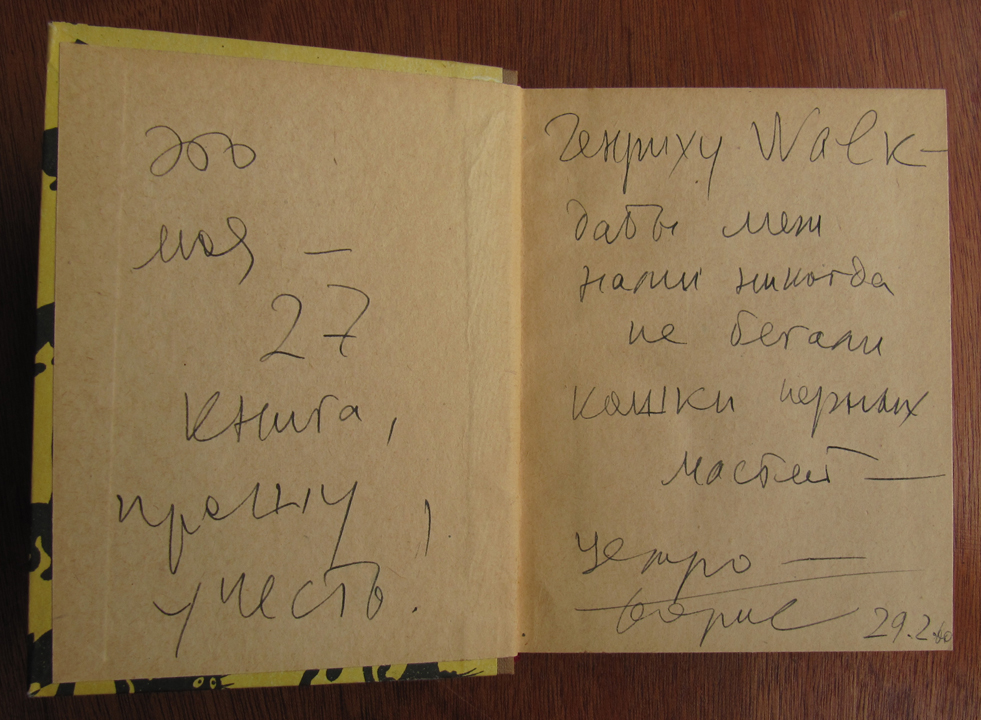 это
моя —
27
книга,
прошу,
учесть.
Генриху Walk-
дабы меж
нами никогда
не бегали
кошки черных
мастей —
Борис 29.2.60